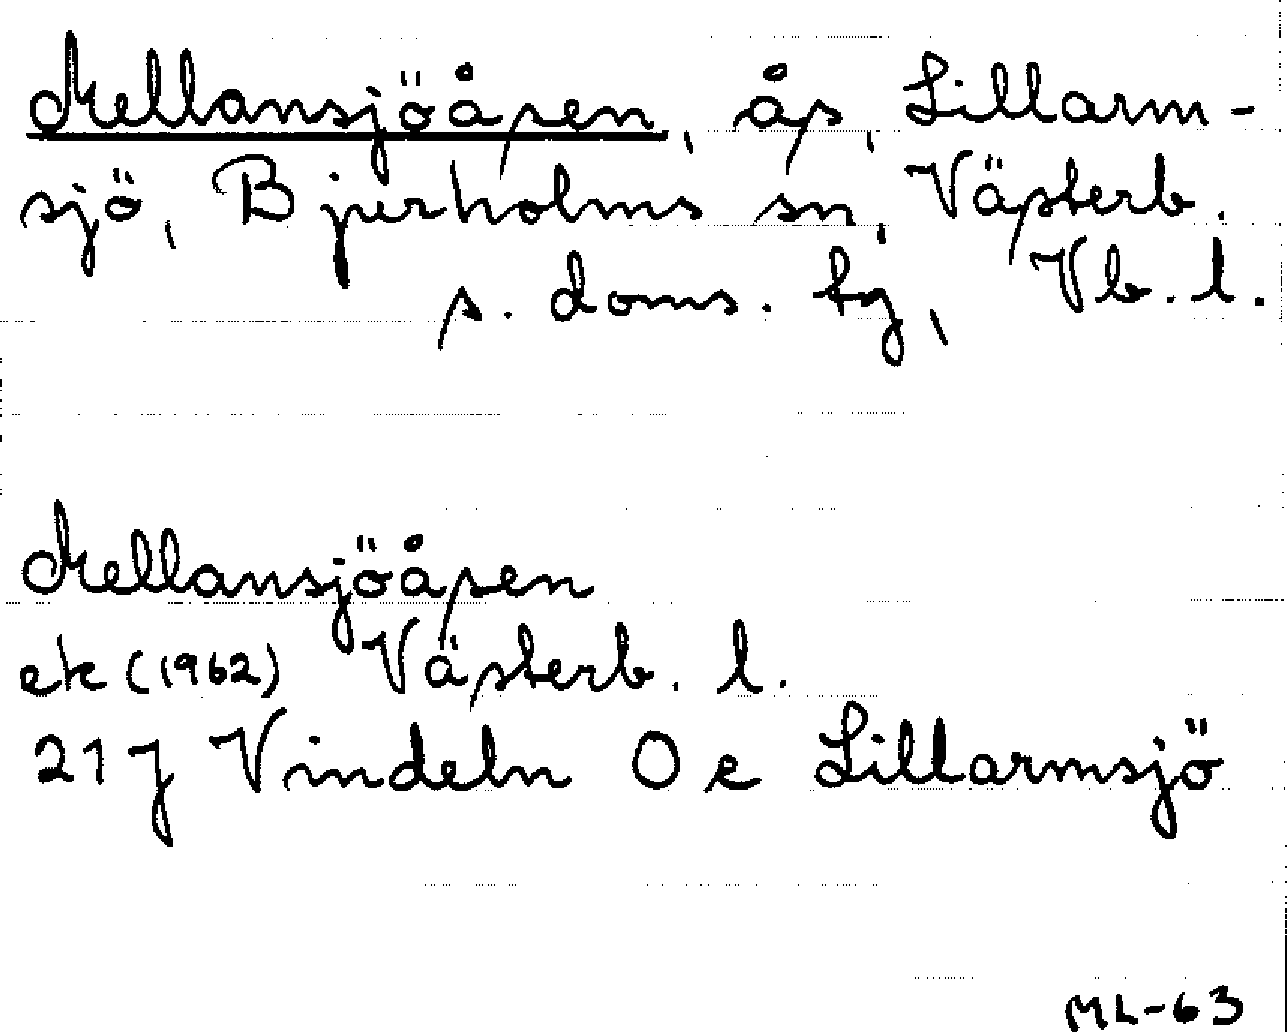 Mellansjöåsen, ås, Lillarm-
sjö, Bjurholms sn, Västerb.
s. doms. tg, Vb. l.
Mellansjöåsen
ek (1962) Västerb. l.
21 J Vindeln 0 e Lillarmsjö
ML-63